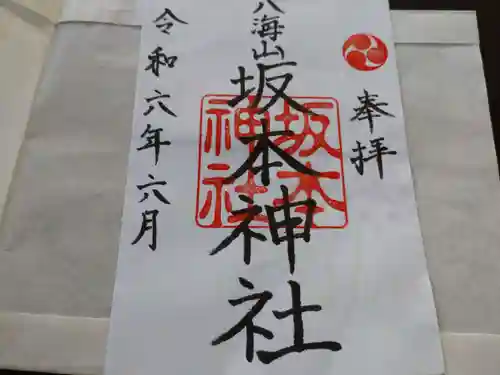 奉拝
八海山
坂本神社
坂本
神社
令和六年六月